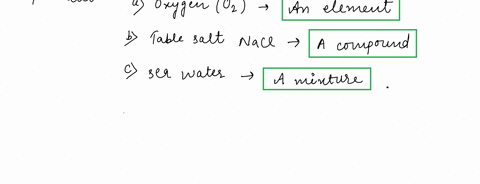 a) Oxygen (O2) → An element
b) Table salt NaCl → A compound
c) sea water → A mixture.